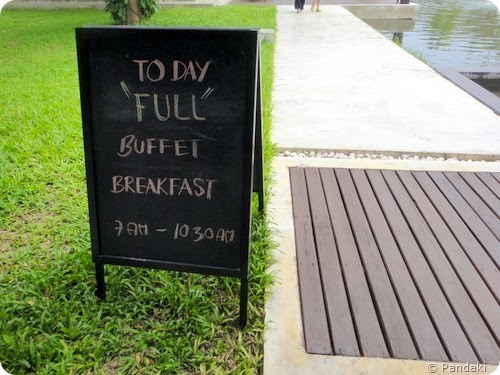 TO DAY
"FULL"
BUFFET
BREAKFAST
7 AM - 10.30 AM
© Pandaki